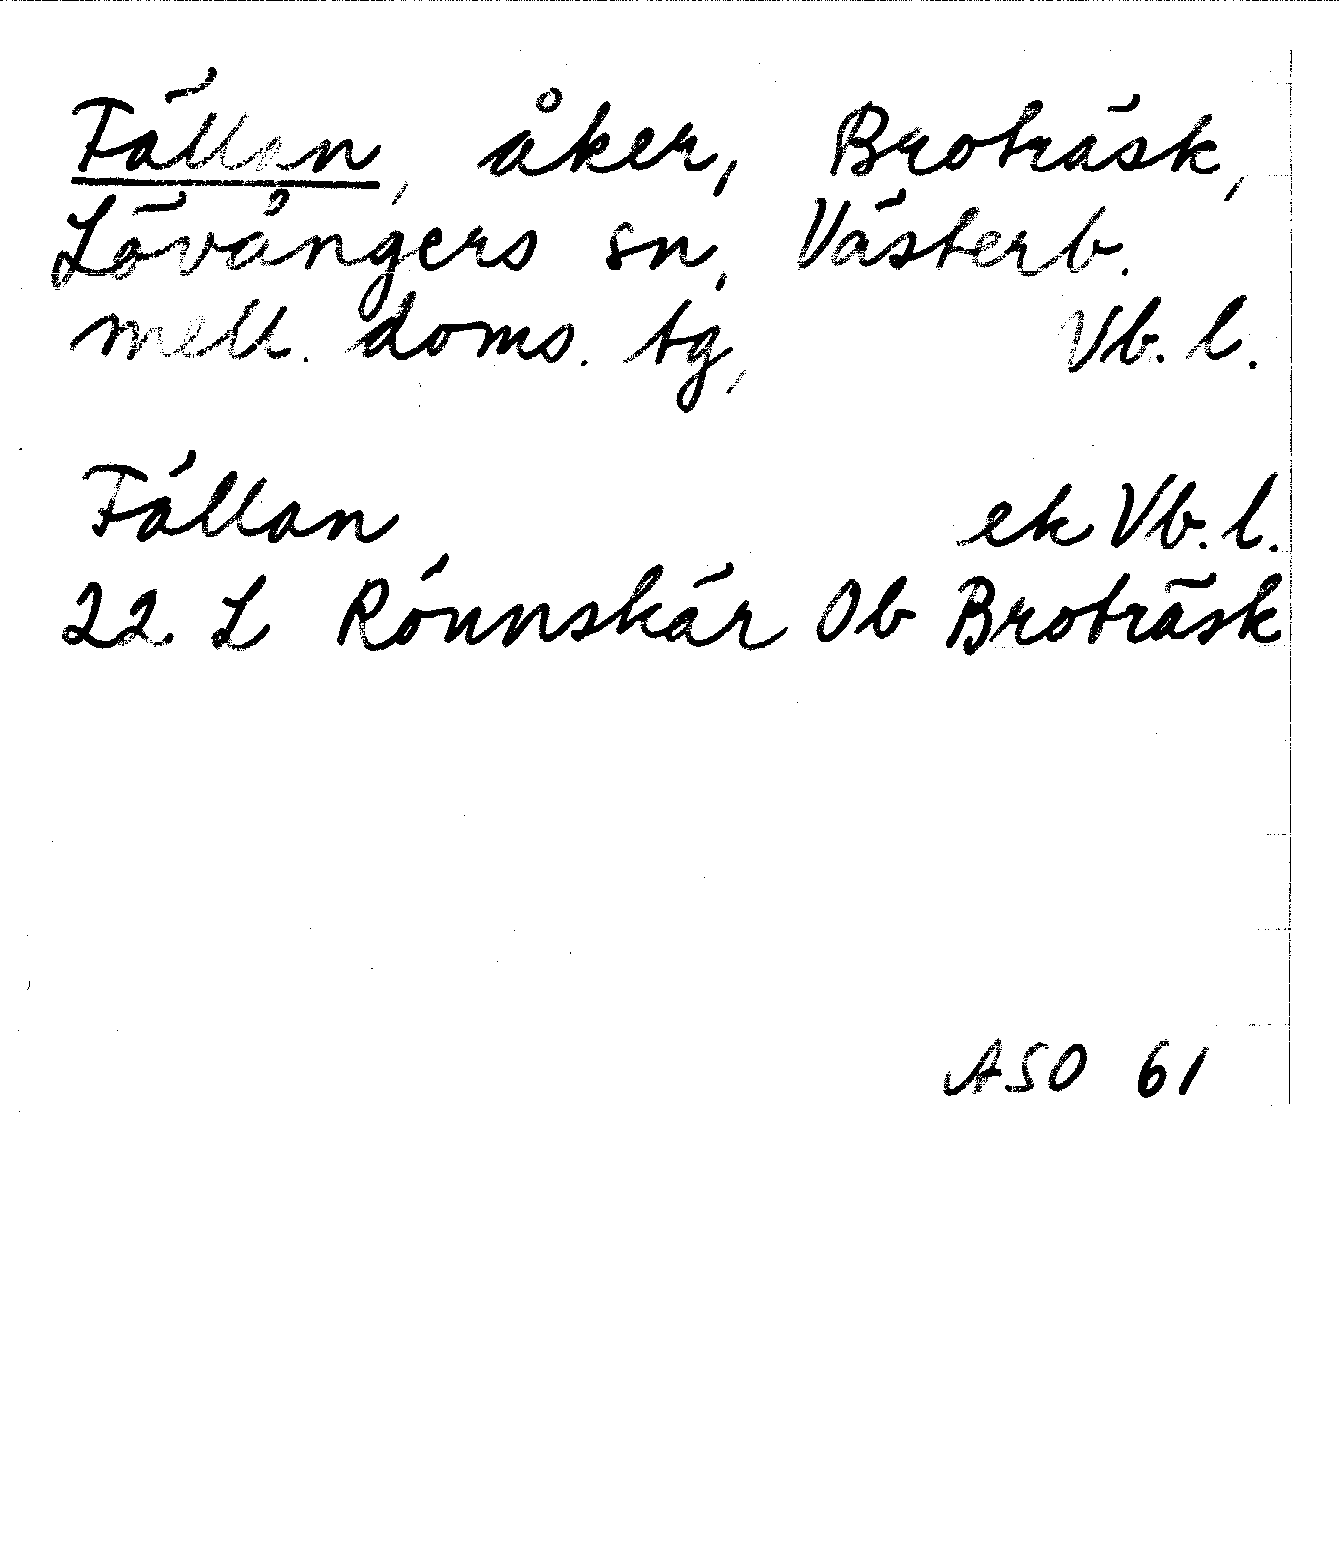 Fällan, åker, Broträsk,
Lövångers sn, Västerb.
mell. doms. tg, Vb. l.
Fällan ek Vb. l.
22. L Rönnskär Ob Broträsk
ASO 61